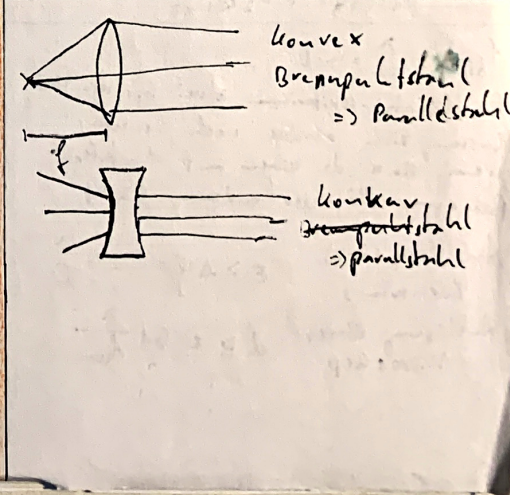 konvex
Brennpuktstahl
=> Parallelstahl
f
konkav
Brennpuktstahl
=> parallstahl